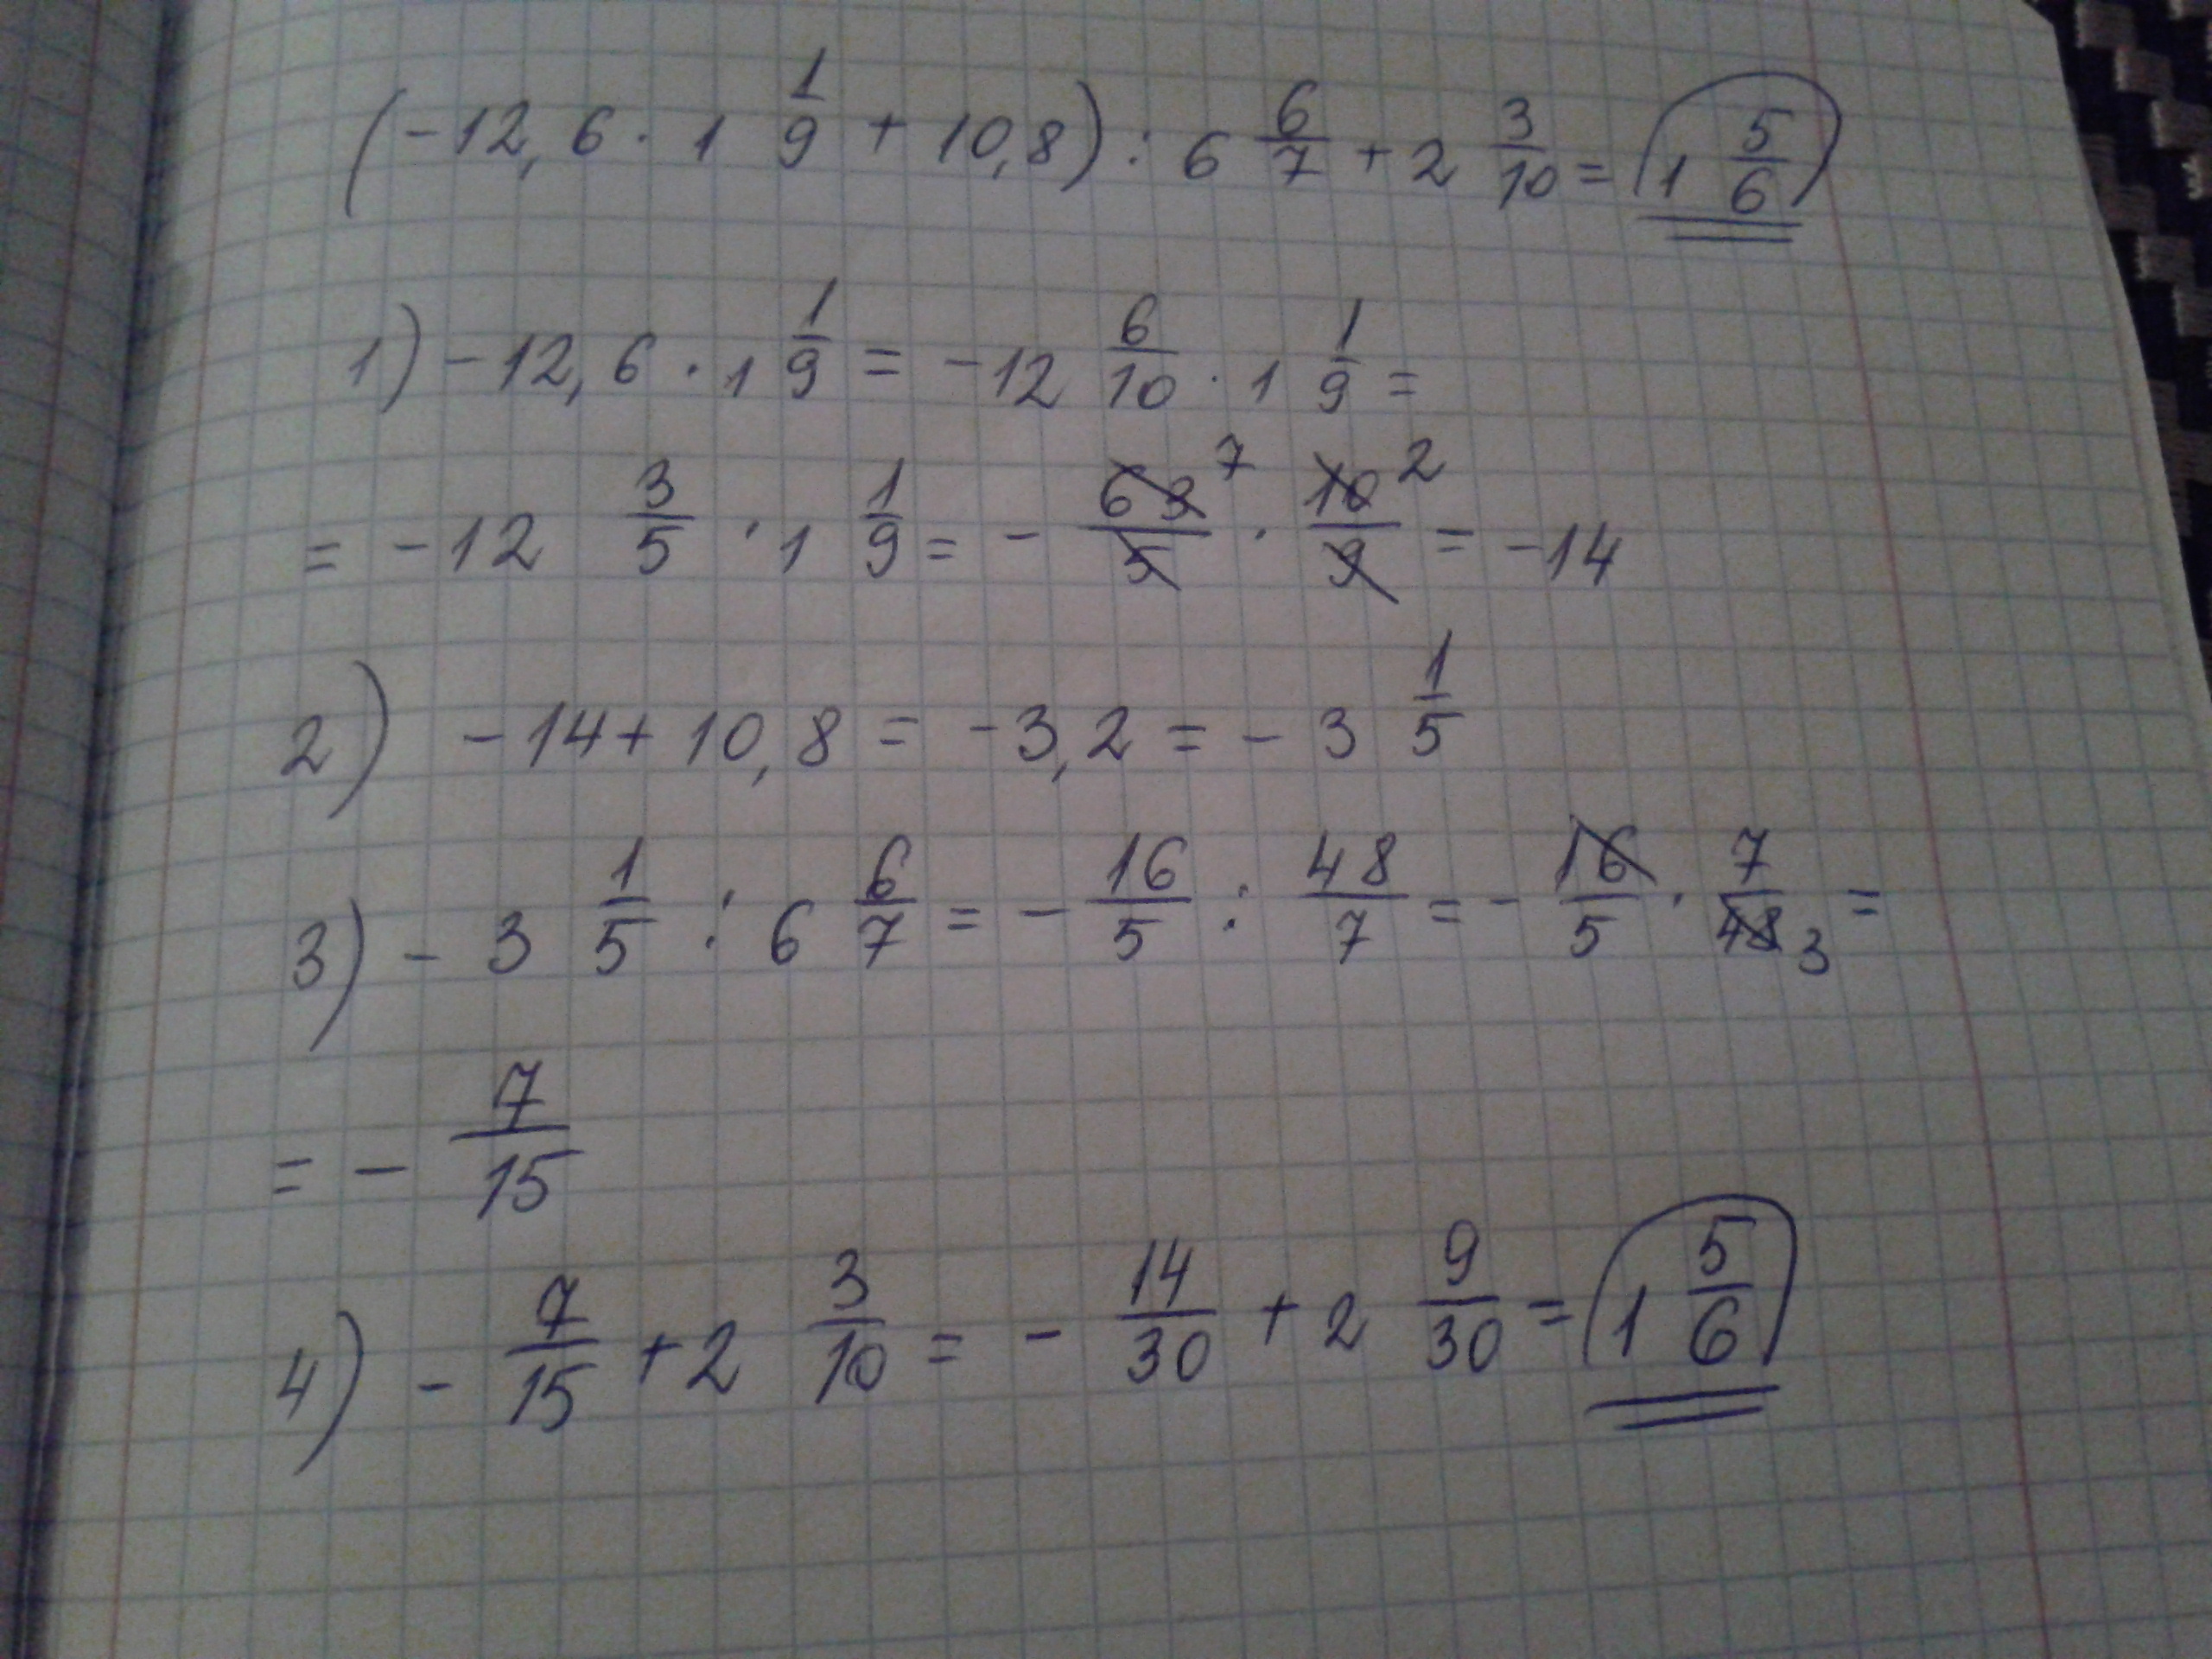 (-12,6 · 1 1/9 + 10,8) : 6 6/7 + 2 3/10 = 1 5/6
1) -12,6 · 1 1/9 = -12 6/10 · 1 1/9 =
= -12 3/5 · 1 1/9 = - 63/5 7 · 10/9 2 = -14
2) -14 + 10,8 = -3,2 = -3 1/5
3) -3 1/5 : 6 6/7 = - 16/5 : 48/7 = - 16/5 · 7/48 3 =
= - 7/15
4) - 7/15 + 2 3/10 = - 14/30 + 2 9/30 = 1 5/6